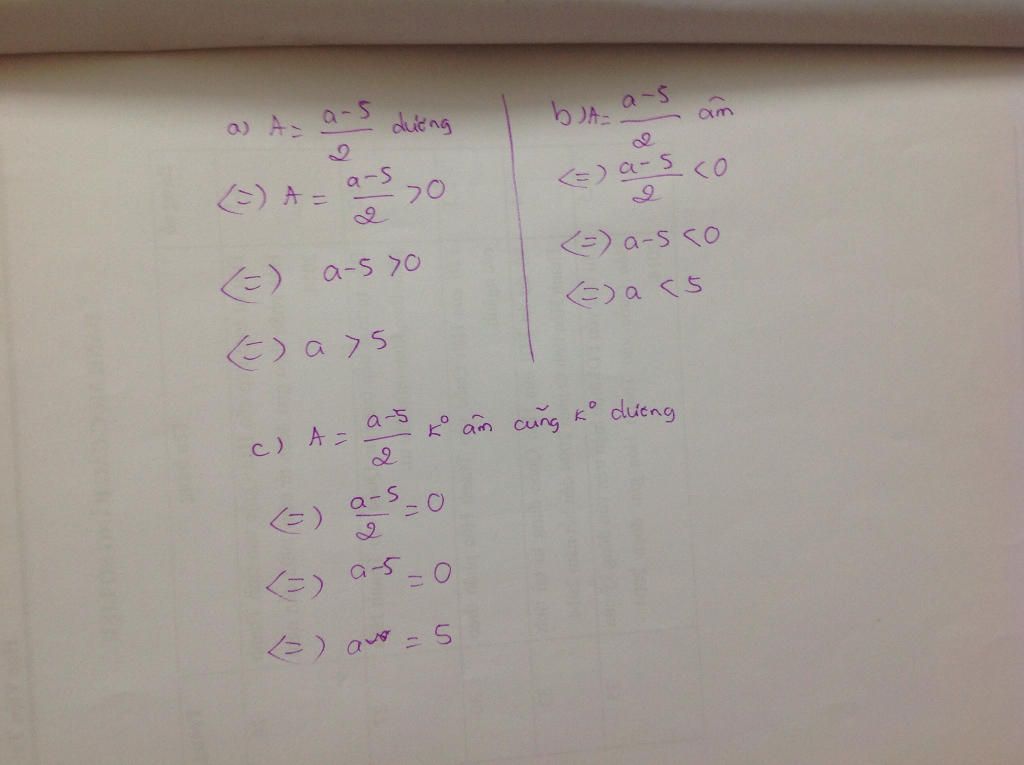 a) A = (a-5)/2 dương
<=) A = (a-5)/2 >0
<=) a-5 >0
<=) a > 5
b) A= (a-5)/2 âm
<=) (a-5)/2 <0
<=) a-5 <0
<=) a < 5
c) A = (a-5)/2 k° âm cũng k° dương
<=) (a-5)/2 = 0
<=) a-5 = 0
<=) a = 5